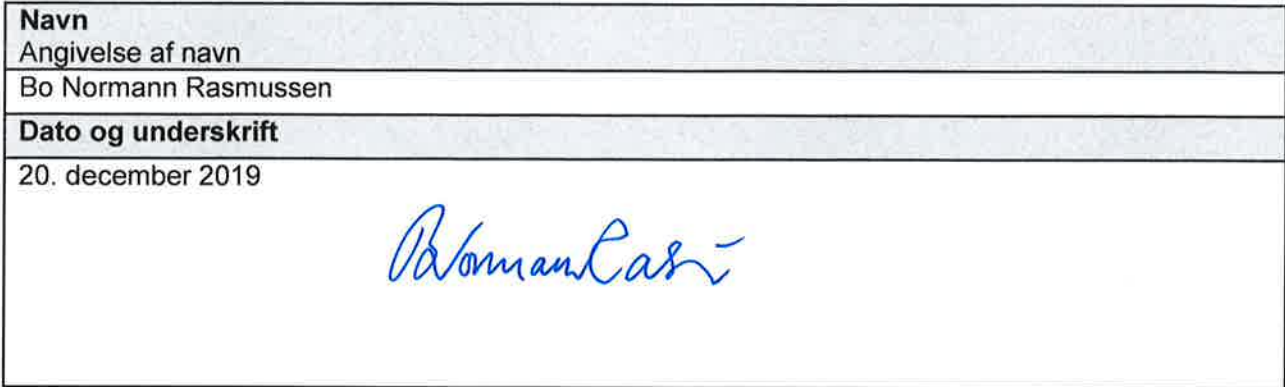 Navn
Angivelse af navn
Bo Normann Rasmussen
Dato og underskrift
20. december 2019